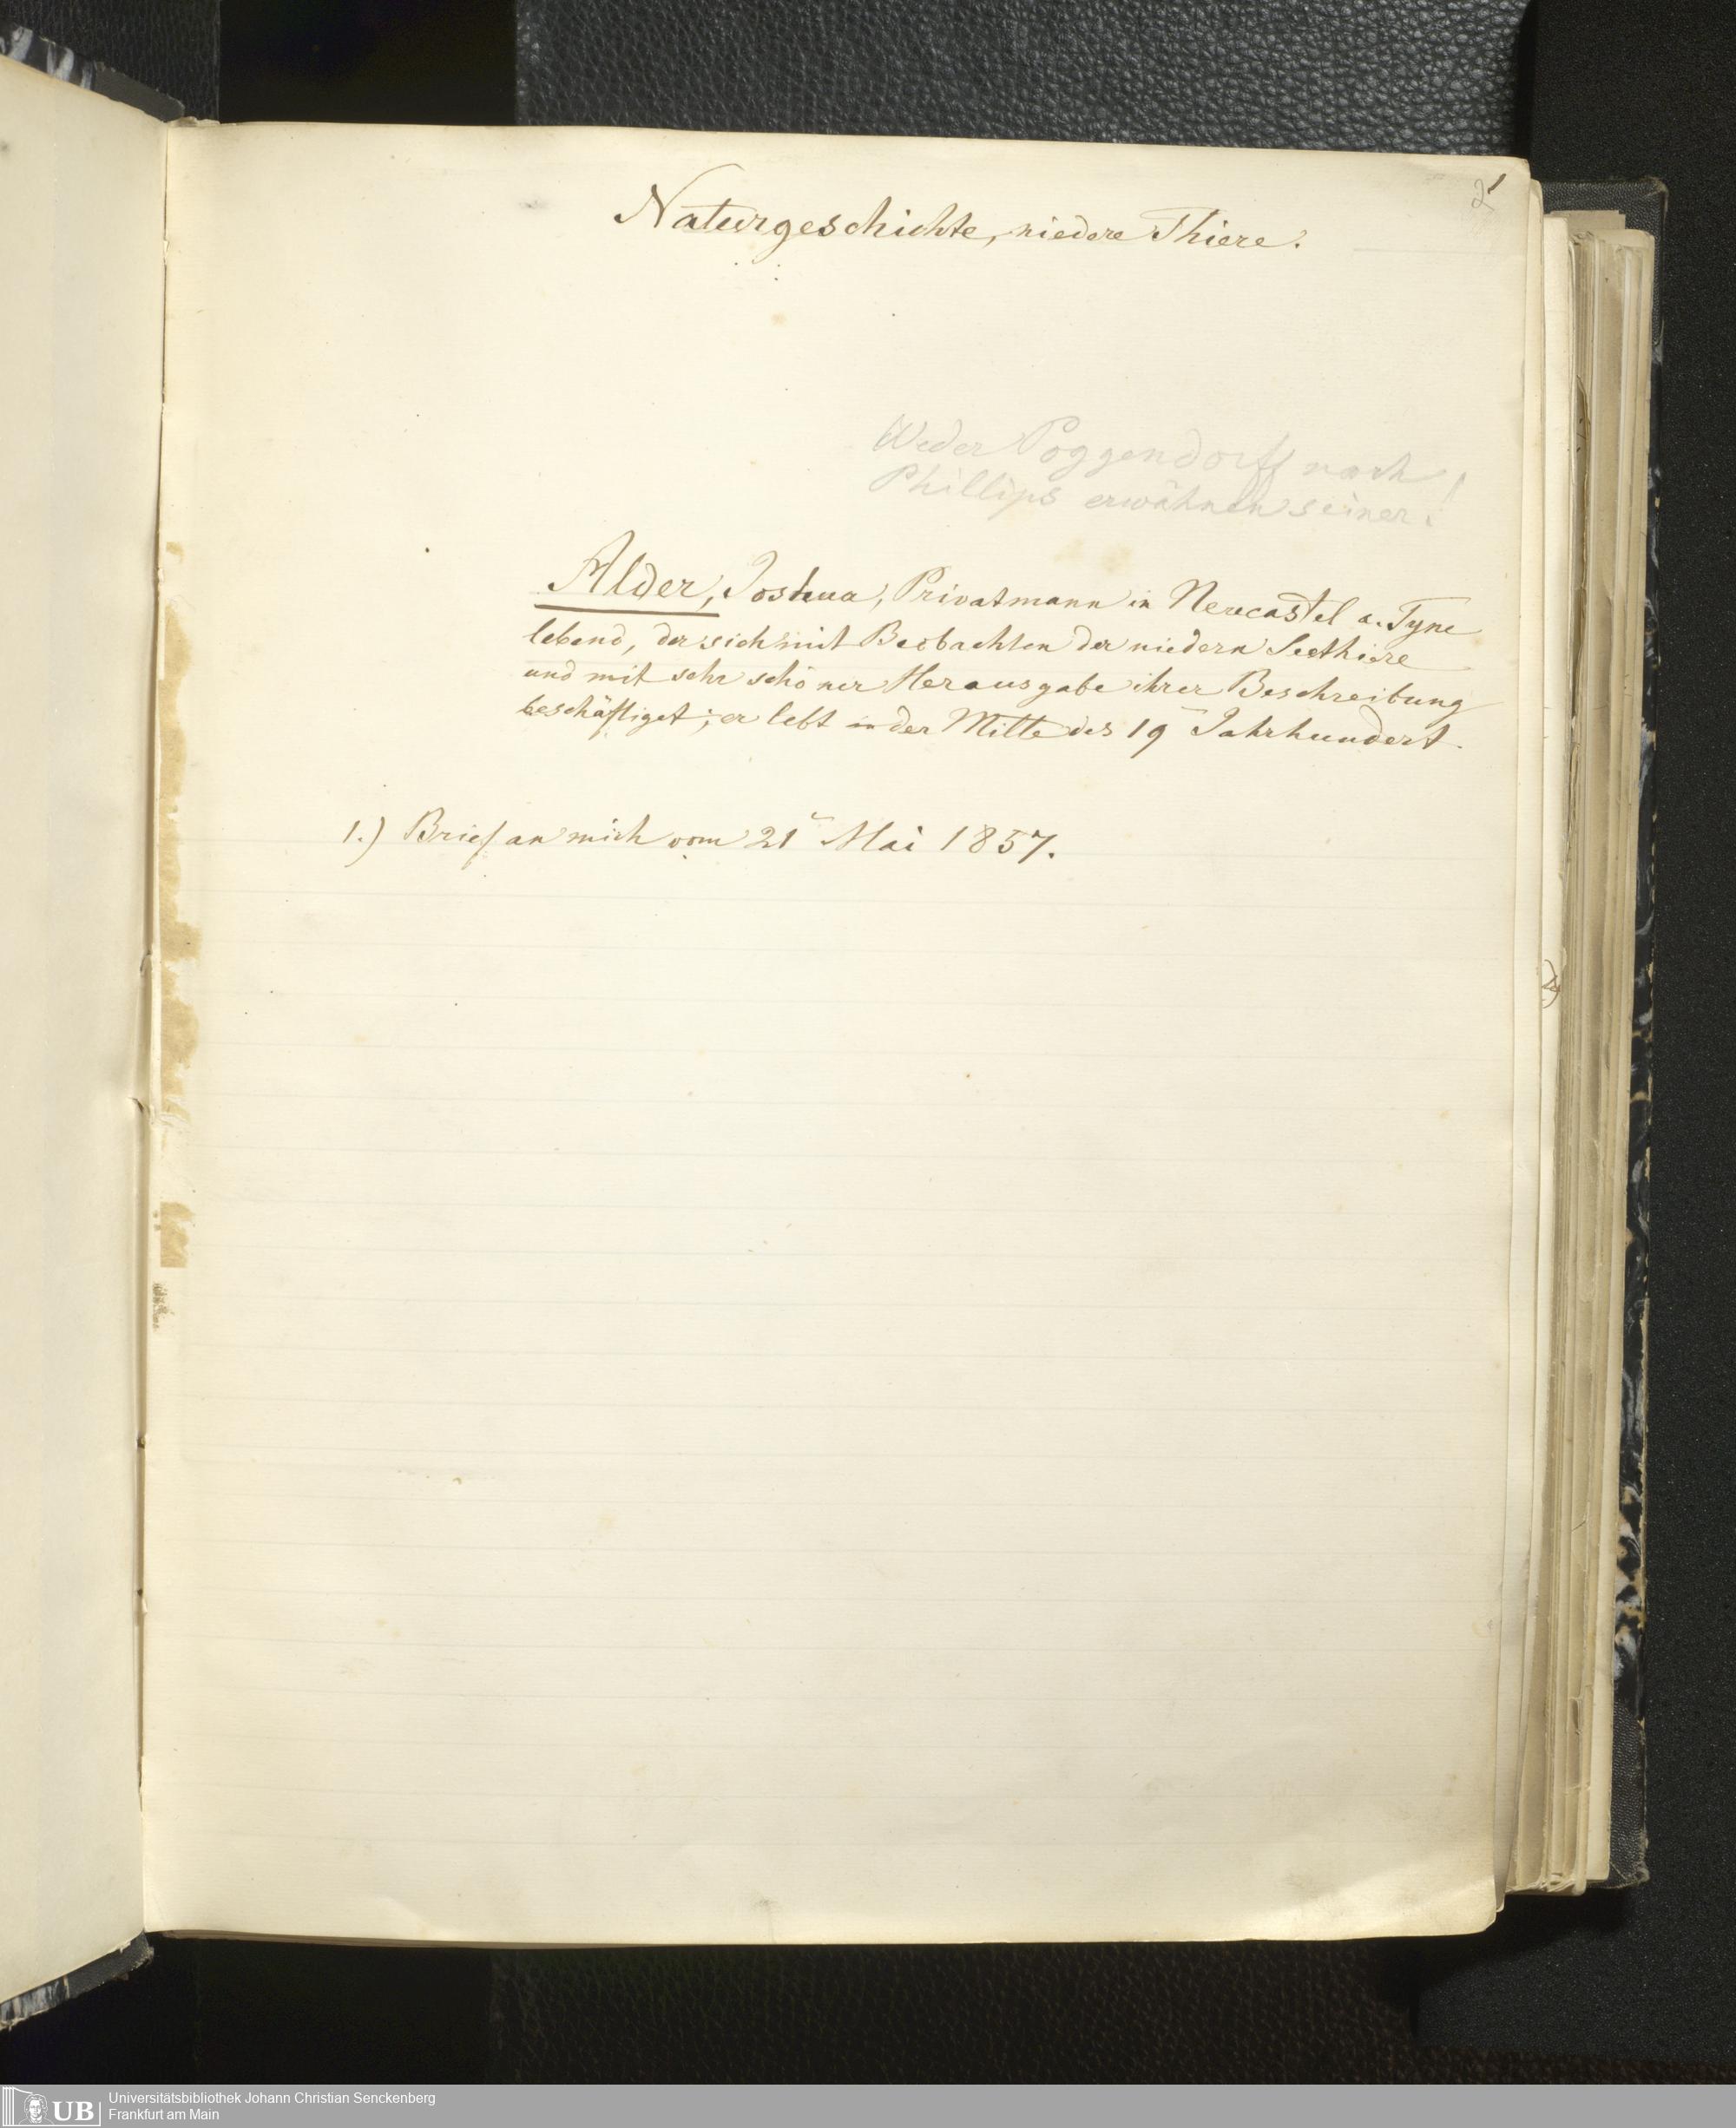 21
Naturgeschichte, niedere Thiere.
Weder Poggendorff noch
Phillips erwähnen seiner!
Alder, Joshua, Privatmann in Newcastel a. Tyne
lebend, der sich mit Beobachten der niedern Seethiere
und mit sehr schöner Herausgabe ihrer Beschreibung
beschäftiget; er lebt in der Mitte des 19 Jahrhundert.
1.) Brief an mich vom 21 Mai 1857.
UB Universitätsbibliothek Johann Christian Senckenberg
Frankfurt am Main